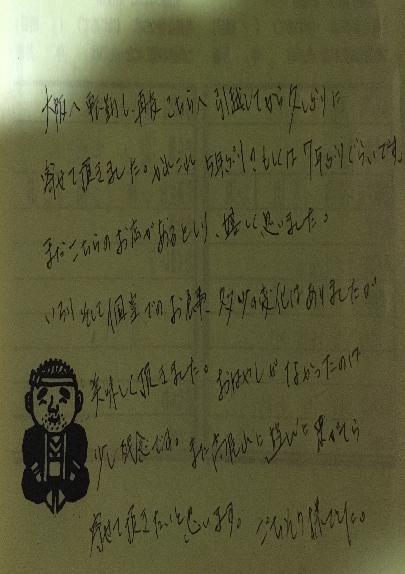 大阪へ転勤し、再度こちらへ引越してから久しぶりに
寄せて頂きました。かれこれ5年ぶり?もしくは7年ぶりぐらいです。
まだこちらのお店があるとしり、嬉しく思いました。
いろり 個室でのお食事、多少の変化はありましたが
美味しく頂きました。おはやしがなかったのは
少し残念です。また に と
寄せて頂きたいと思います。ごちそう様でした。